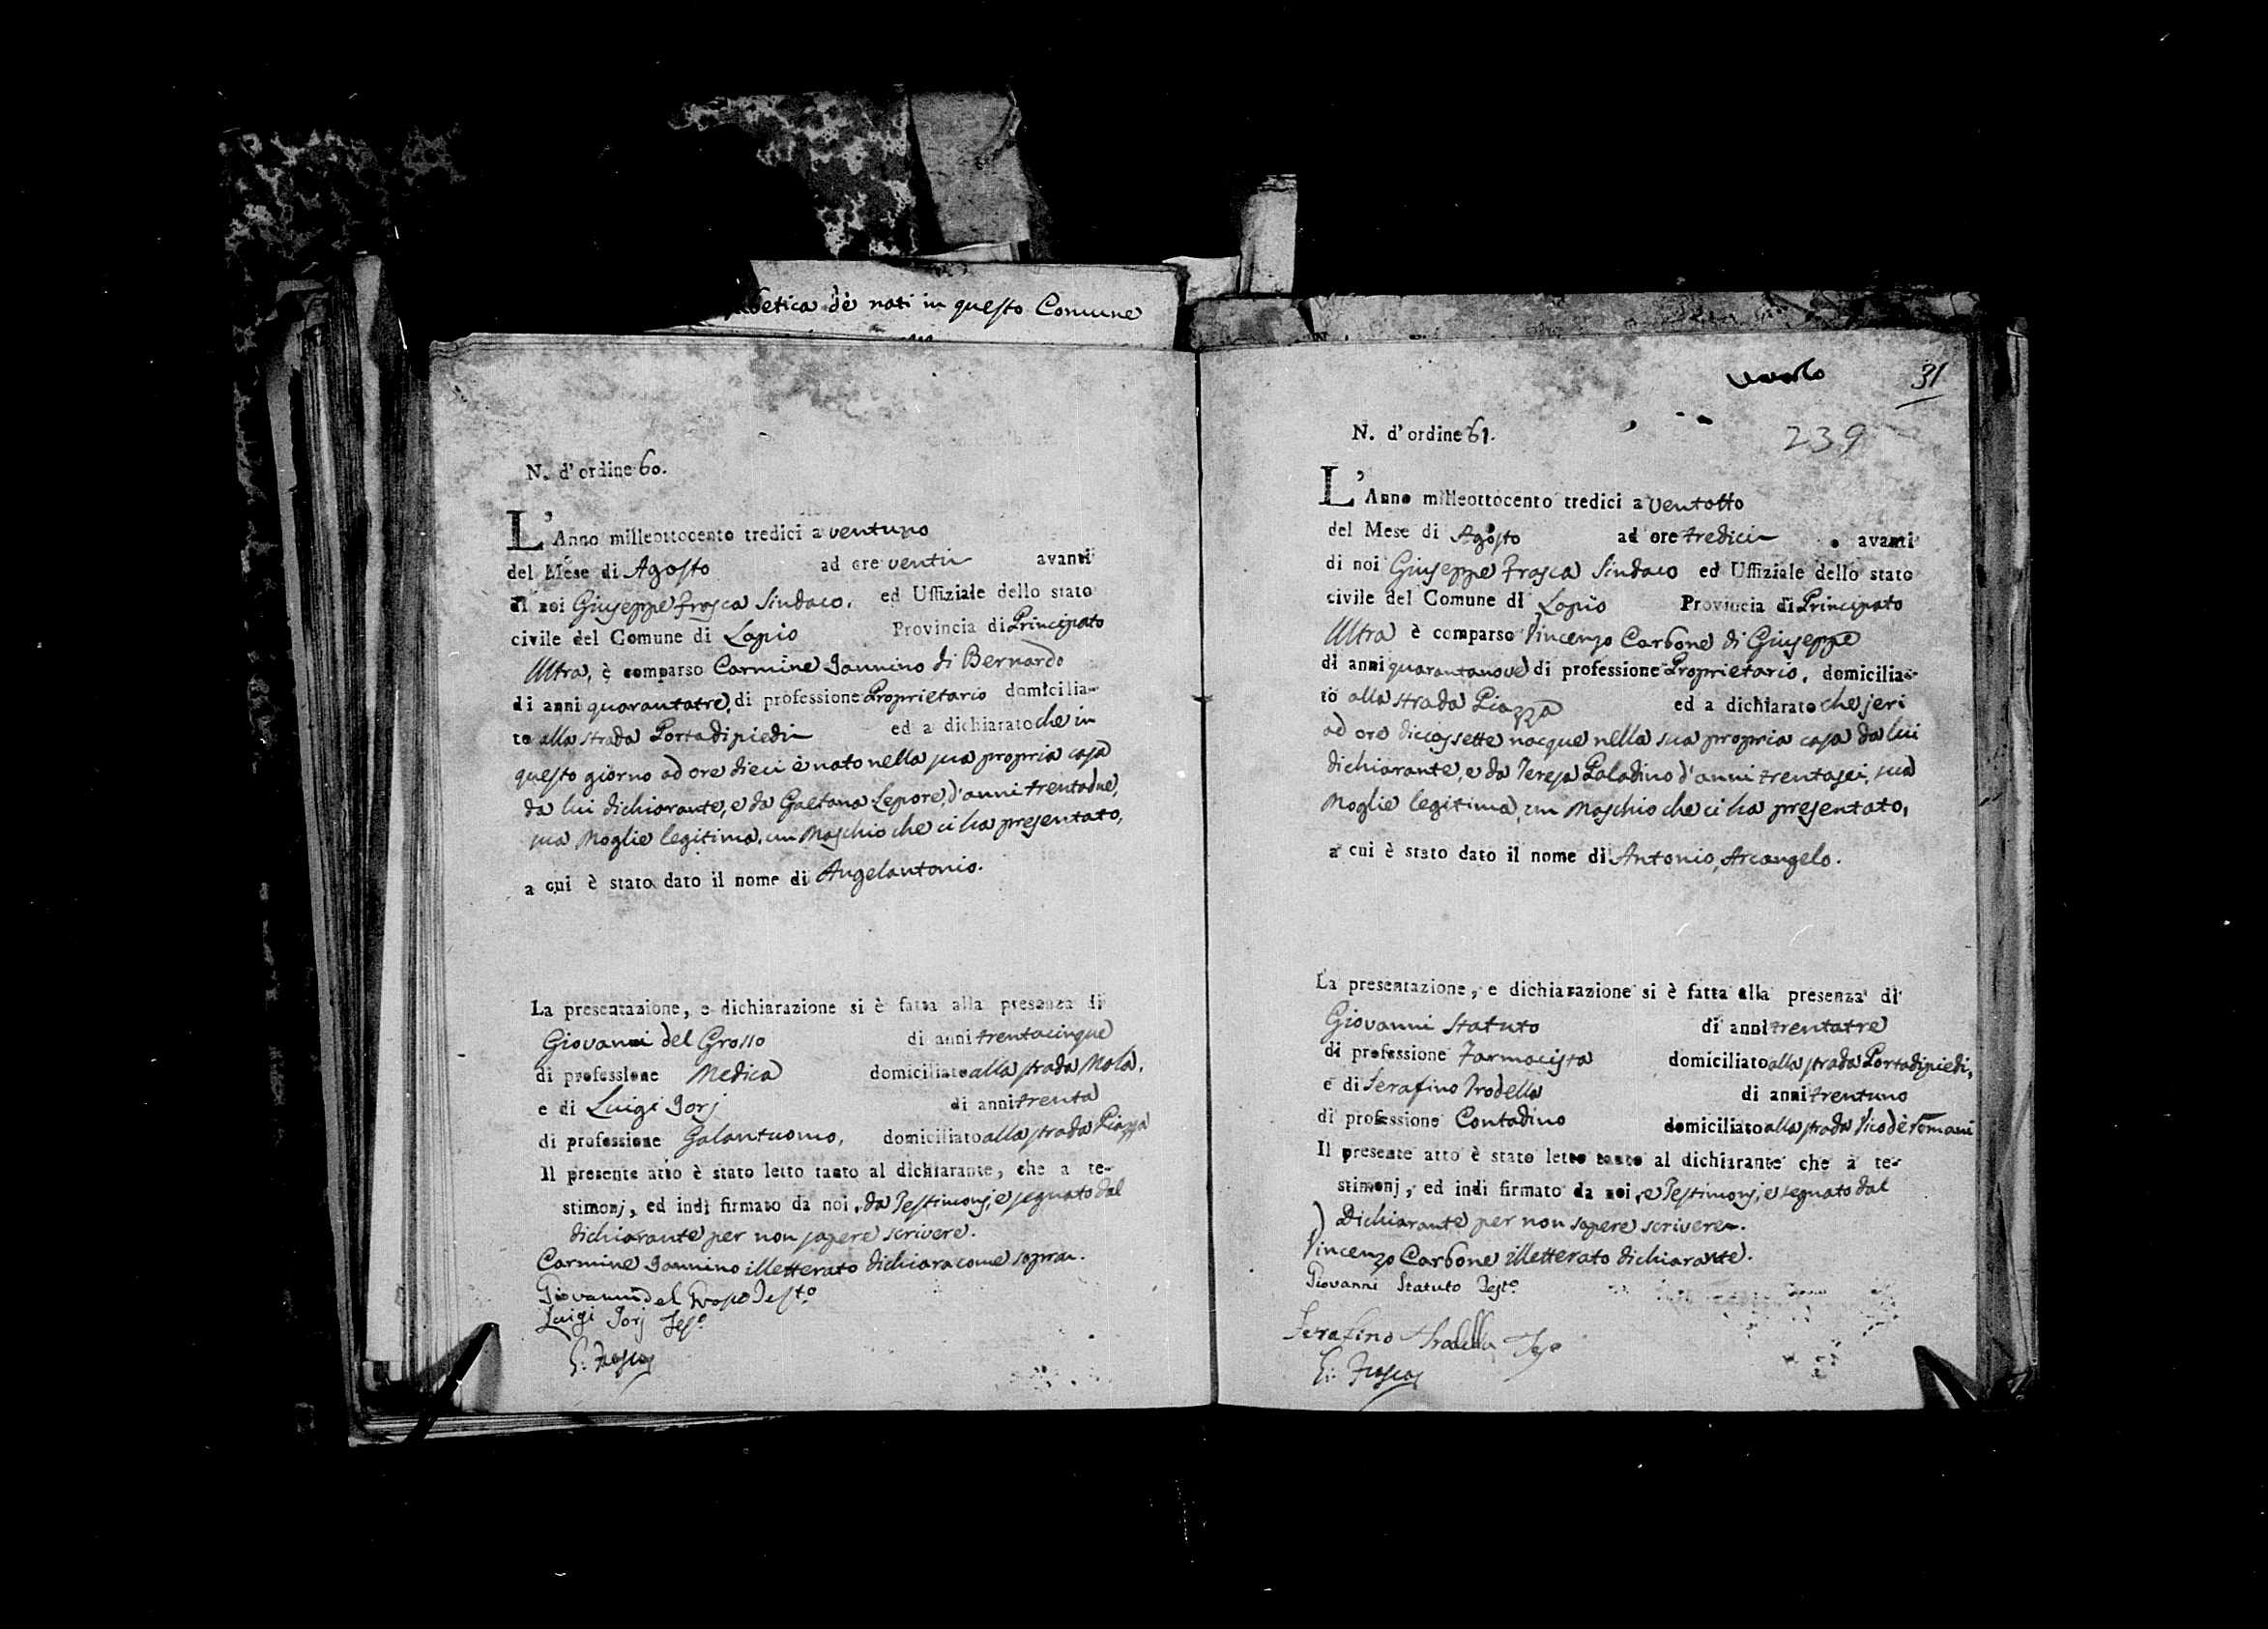 betica dè nati in questo Comune
N. d'ordine 60.
L'Anno milleottocento tredici a ventuno
del Mese di Agosto ad ore venti avanti
di noi Giuseppe Frasca Sindaco, ed Uffiziale dello stato
civile del Comune di Lapio Provincia di Principato
Ultra, è comparso Carmine Iannino di Bernardo
di anni quarantatre, di professione Proprietario domicilia-
to alla strada Portadipiedi ed a dichiarato che in
questo giorno ad ore dieci è nato nella sua propria casa
da lui dichiarante, e da Gaetana Lepore, d'anni trentadue,
sua Moglie legitima, un Maschio che ci ha presentato,
a cui è stato dato il nome di Angelantonio.
La presentazione, e dichiarazione si è fatta alla presenza di
Giovanni del Grosso di anni trentacinque
di professione Medica domiciliato alla strada Mola,
e di Luigi Iorj di anni trenta
di professione Galantuomo, domiciliato alla strada Piazza
Il presente atto è stato letto tanto al dichiarante, che a te-
stimonj, ed indi firmato da noi, da Testimonj, e segnato dal
dichiarante per non sapere scrivere.
Carmine Iannino illetterato dichiara come sopra.
Giovanni del Grosso Testo
Luigi Iorj Teso
G: Frasca
31
239
N. d'ordine 61.
L'Anno milleottocento tredici a ventotto
del Mese di Agosto ad ore tredici avanti
di noi Giuseppe Frasca Sindaco ed Uffiziale dello stato
civile del Comune di Lapio Provincia di Principato
Ultra è comparso Vincenzo Carbone di Giuseppe
di anni quarantanove di professione Proprietario, domicilia-
to alla strada Piazza ed a dichiarato che jeri
ad ore diciassette nacque nella sua propria casa da lui
dichiarante, e da Teresa Paladino d'anni trentasei, sua
Moglie legitima, un Maschio che ci ha presentato,
a cui è stato dato il nome di Antonio, Arcangelo.
La presentazione, e dichiarazione si è fatta alla presenza di
Giovanni Statuto di anni trentatre
di professione Farmacista domiciliato alla strada Portadipiedi,
e di Serafino Trodella di anni trentuno
di professione Contadino domiciliato alla strada Vico dè Romani
Il presente atto è stato letto tanto al dichiarante che a te-
stimonj, ed indi firmato da noi, e Testimonj, e segnato dal
Dichiarante per non sapere scrivere.
Vincenzo Carbone illetterato dichiarante.
Giovanni Statuto Testo
Serafino Trodella Teso
G: Frasca